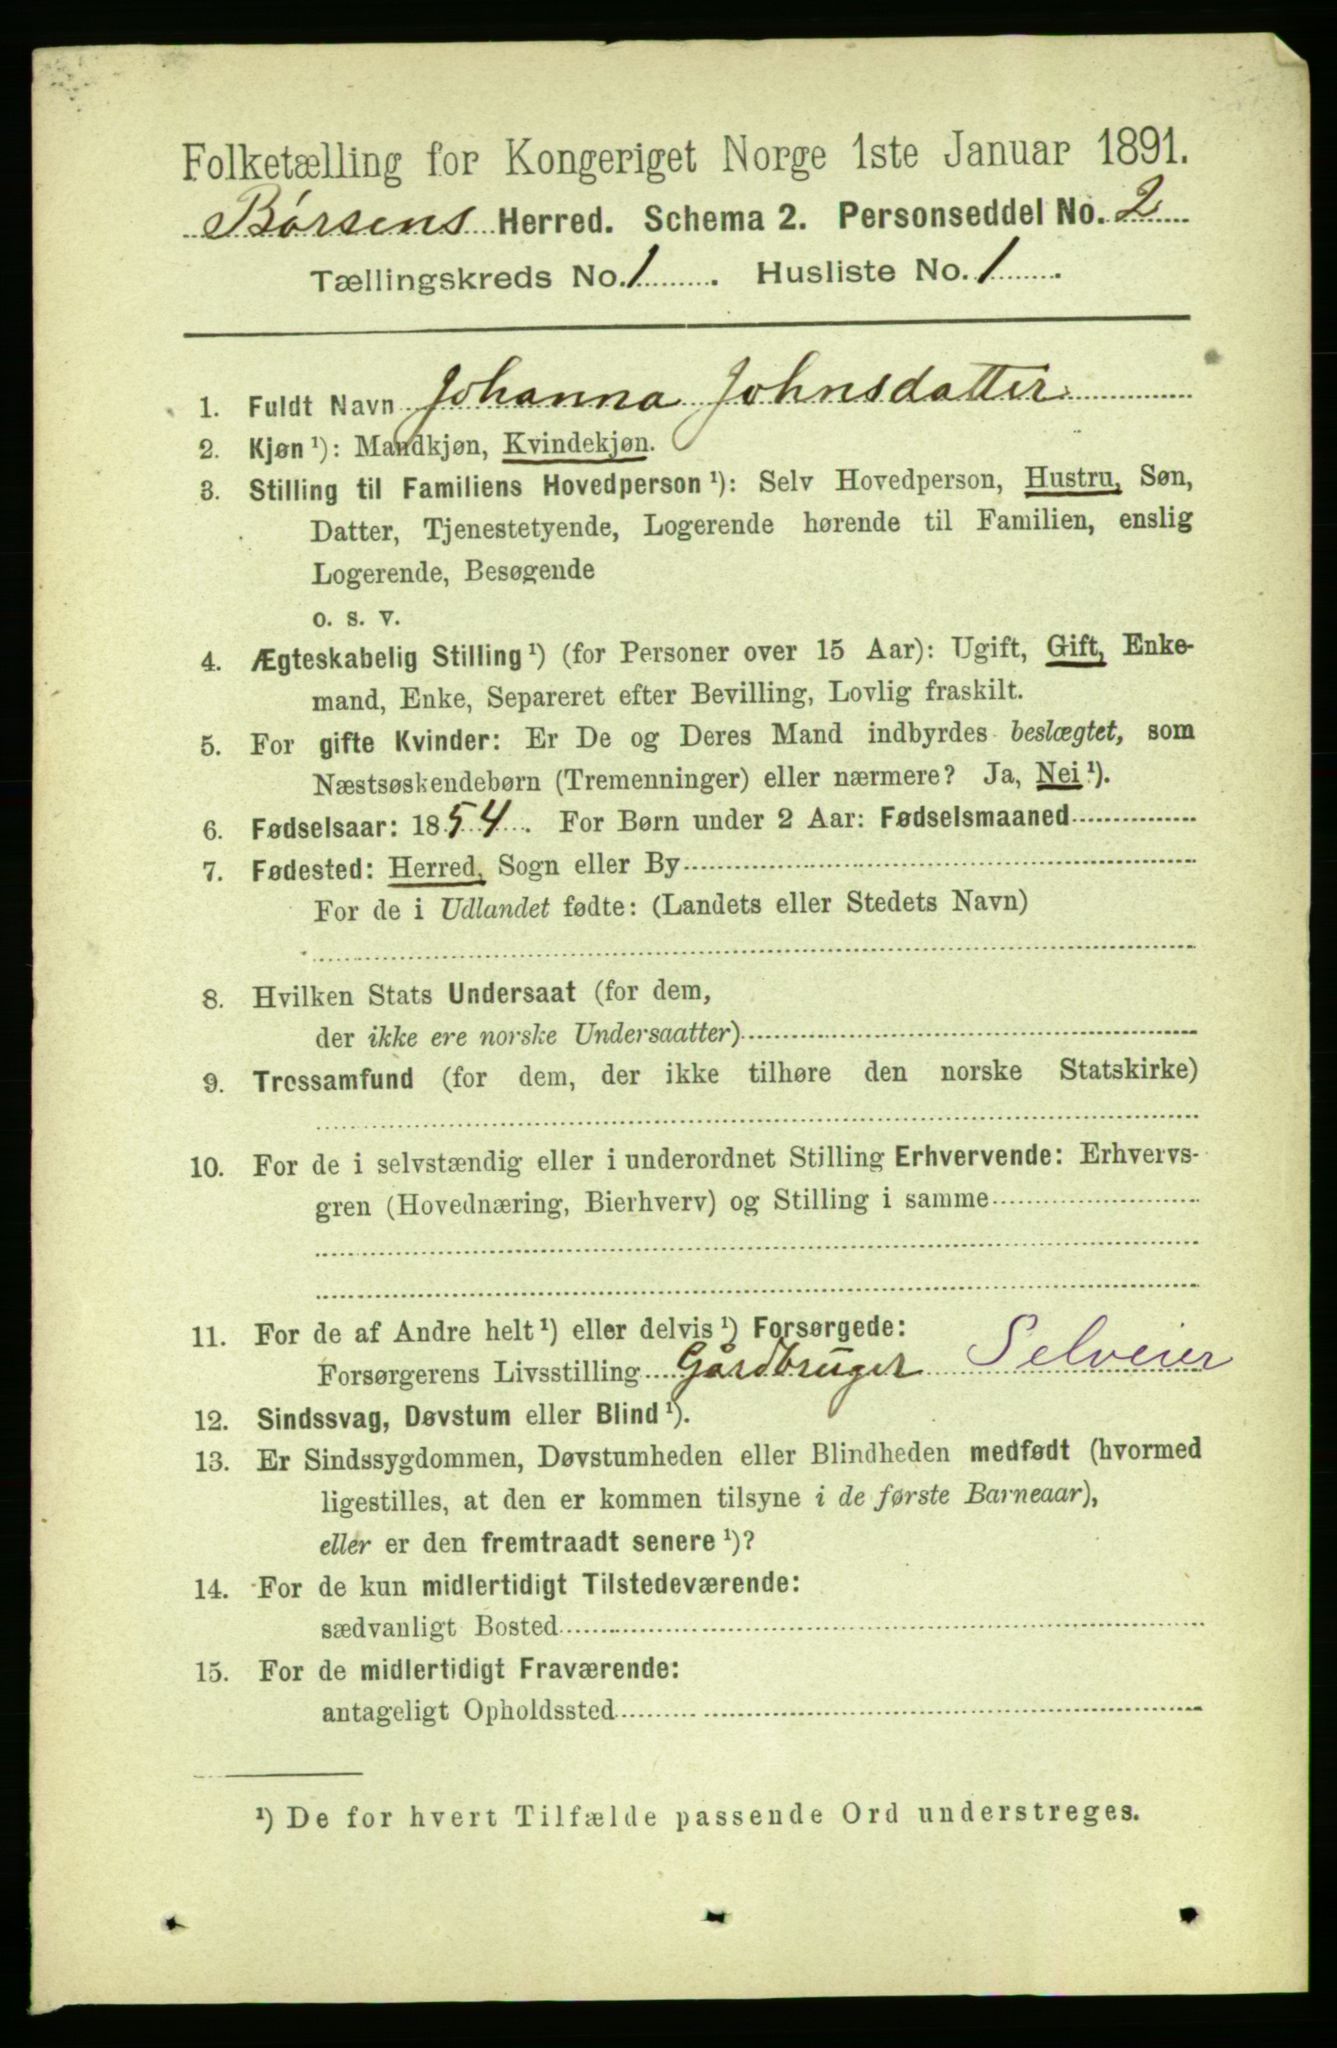 Folketælling for Kongeriget Norge 1ste Januar 1891.
Børsens Herred. Schema 2. Personseddel No. 2
Tællingskreds No. 1. Husliste No. 1.
1. Fuldt Navn Johanna Johnsdatter
2. Kjøn ¹): Mandkjøn, Kvindekjøn.
3. Stilling til Familiens Hovedperson ¹): Selv Hovedperson, Hustru, Søn,
Datter, Tjenestetyende, Logerende hørende til Familien, enslig
Logerende, Besøgende
o. s. v.
4. Ægteskabelig Stilling ¹) (for Personer over 15 Aar): Ugift, Gift, Enke-
mand, Enke, Separeret efter Bevilling, Lovlig fraskilt.
5. For gifte Kvinder: Er De og Deres Mand indbyrdes beslægtet, som
Næstsøskendebørn (Tremenninger) eller nærmere? Ja, Nei ¹).
6. Fødselsaar: 1854. For Børn under 2 Aar: Fødselsmaaned
7. Fødested: Herred, Sogn eller By
For de i Udlandet fødte: (Landets eller Stedets Navn)
8. Hvilken Stats Undersaat (for dem,
der ikke ere norske Undersaatter)
9. Trossamfund (for dem, der ikke tilhøre den norske Statskirke)
10. For de i selvstændig eller i underordnet Stilling Erhvervende: Erhvervs-
gren (Hovednæring, Bierhverv) og Stilling i samme
11. For de af Andre helt ¹) eller delvis ¹) Forsørgede:
Forsørgerens Livsstilling Gårdbruger Selveier
12. Sindssvag, Døvstum eller Blind ¹).
13. Er Sindssygdommen, Døvstumheden eller Blindheden medfødt (hvormed
ligestilles, at den er kommen tilsyne i de første Barneaar),
eller er den fremtraadt senere ¹)?
14. For de kun midlertidigt Tilstedeværende:
sædvanligt Bosted
15. For de midlertidigt Fraværende:
antageligt Opholdssted
¹) De for hvert Tilfælde passende Ord understreges.